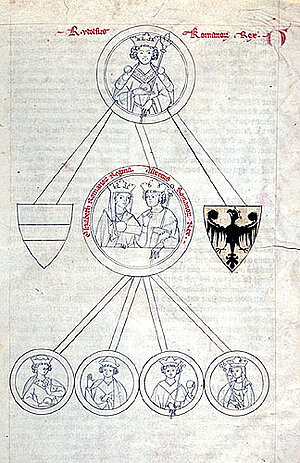 Rudolfus Romanorum Rex
Elizabeth Romanorum Regina Albertus Romanorum Rex